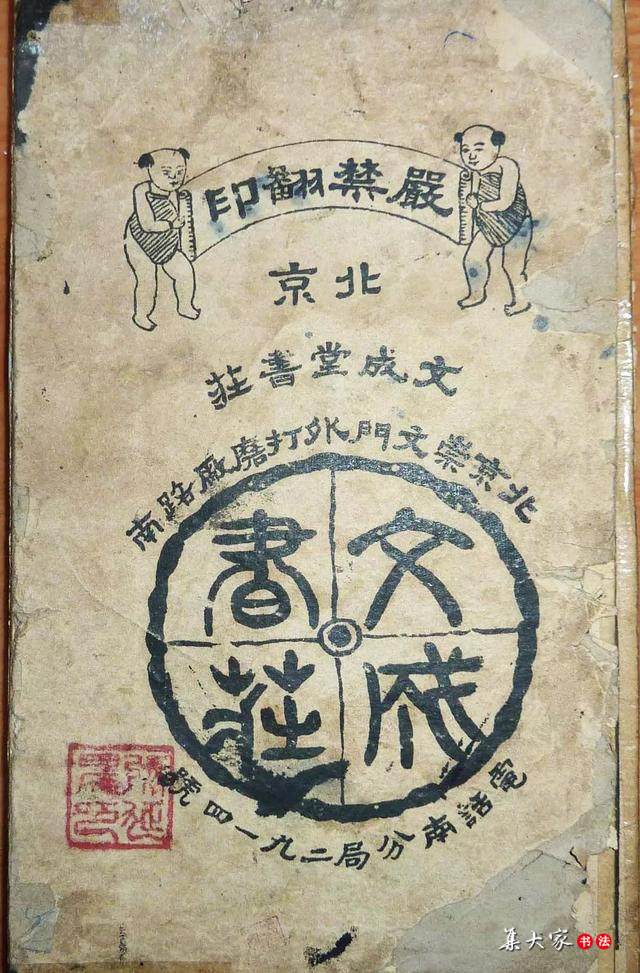 嚴禁翻印
北京
文成堂書莊
北京崇文門外打磨廠路南
文成書莊
電話南分局二九一四號
集大家書法